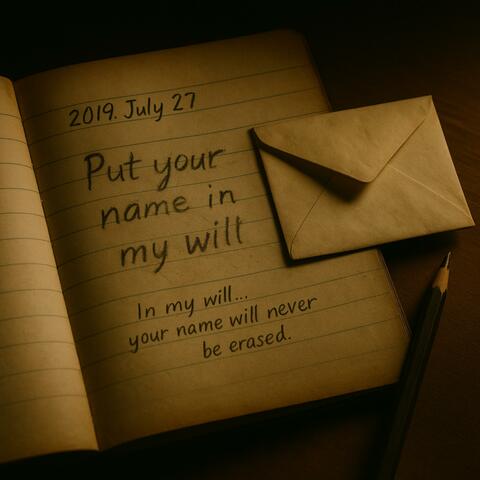 2019. July 27
Put your
name in
my will
In my will...
your name will never
be erased.